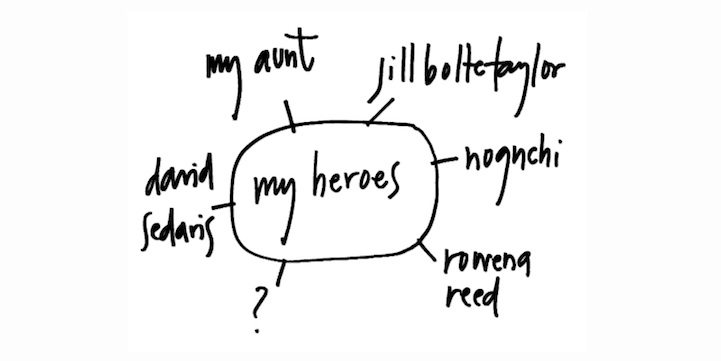 my aunt
jill bolte taylor
my heroes
noguchi
david
sedaris
rowena
reed
?